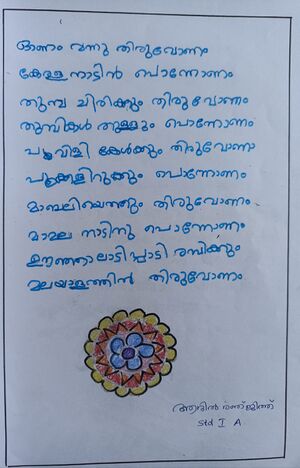 ഓണം വന്നു തിരുവോണം
കേരള നാടിൻ പൊന്നോണം
തുമ്പ ചിരിക്കും തിരുവോണം
തുമ്പികൾ തുള്ളും പൊന്നോണം
പൂവിളി കേൾക്കും തിരുവോണം
പൂക്കളിറുക്കും പൊന്നോണം
മാബലിയെത്തും തിരുവോണം
മാമല നാടിനു പൊന്നോണം
ഊഞ്ഞാലാടിപ്പാടി രമ്പിക്കും
മലയാളത്തിൻ തിരുവോണം
രഞ്ജിത്ത്
Std I A